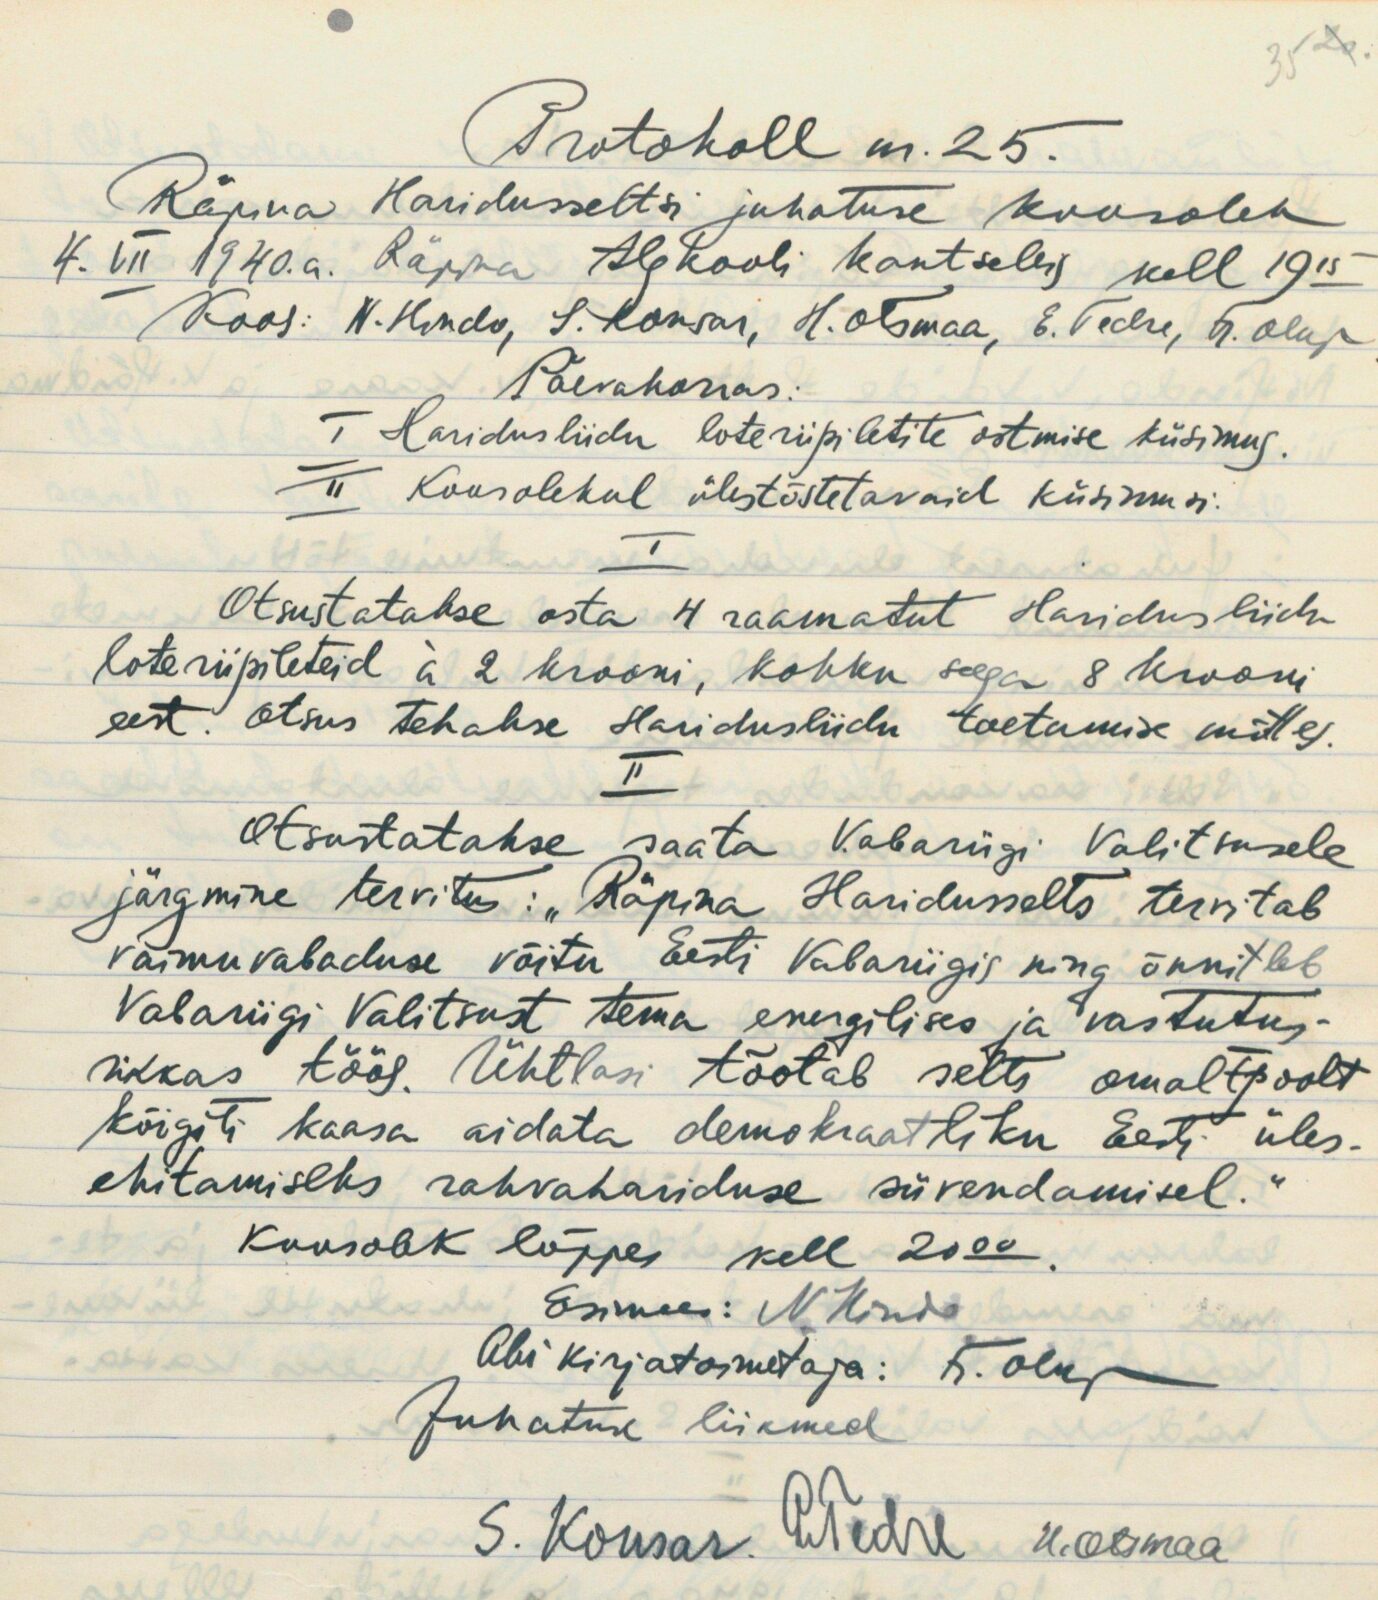 35
Protokoll nr. 25.
Räpina Haridusseltsi juhatuse koosolek
4. VII 1940.a. Räpina Algkooli kantseleis kell 19 15
Koos: N. Hindo, S. Konsar, H. Otsmaa, E. Tedre, Fr. Olup
Päevakorras:
I Haridusliidu loteriipiletite ostmise küsimus.
II Koosolekul ülestõstetavaid küsimusi.
I
Otsustatakse osta 4 raamatut Haridusliidu
loteriipileteid à 2 krooni, kokku seega 8 krooni
eest. Otsus tehakse Haridusliidu toetamise mõttes.
II
Otsustatakse saata Vabariigi Valitsusele
järgmine tervitus: „Räpina Haridusselts tervitab
vaimuvabaduse võitu Eesti Vabariigis ning õnnitleb
Vabariigi Valitsust tema energilises ja vastutus-
rikkas töös. Ühtlasi tõotab selts omaltpoolt
kõigiti kaasa aidata demokraatliku Eesti üles-
ehitamiseks rahvahariduse süvendamisel."
Koosolek lõppes kell 20 00.
Esimees: N. Hindo
Abi kirjatoimetaja: Fr. Olup
Juhatuse liikmed
S. Konsar. E. Tedre H. Otsmaa